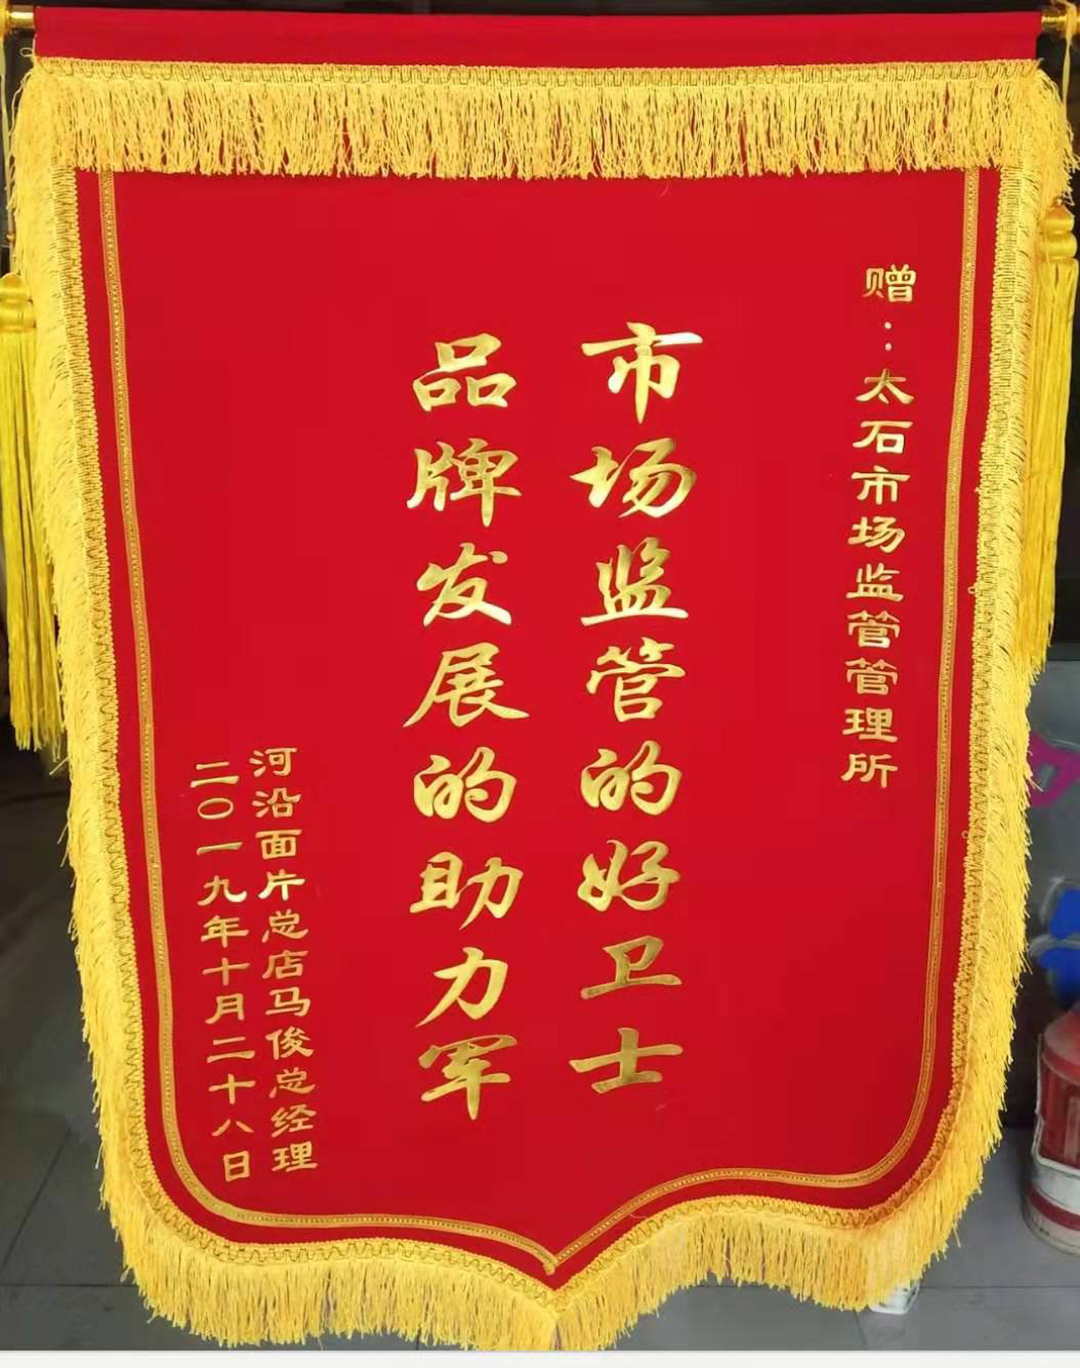 赠：太石市场监管管理所
市场监管的好卫士
品牌发展的助力军
河沿面片总店马俊总经理
二〇一九年十月二十八日